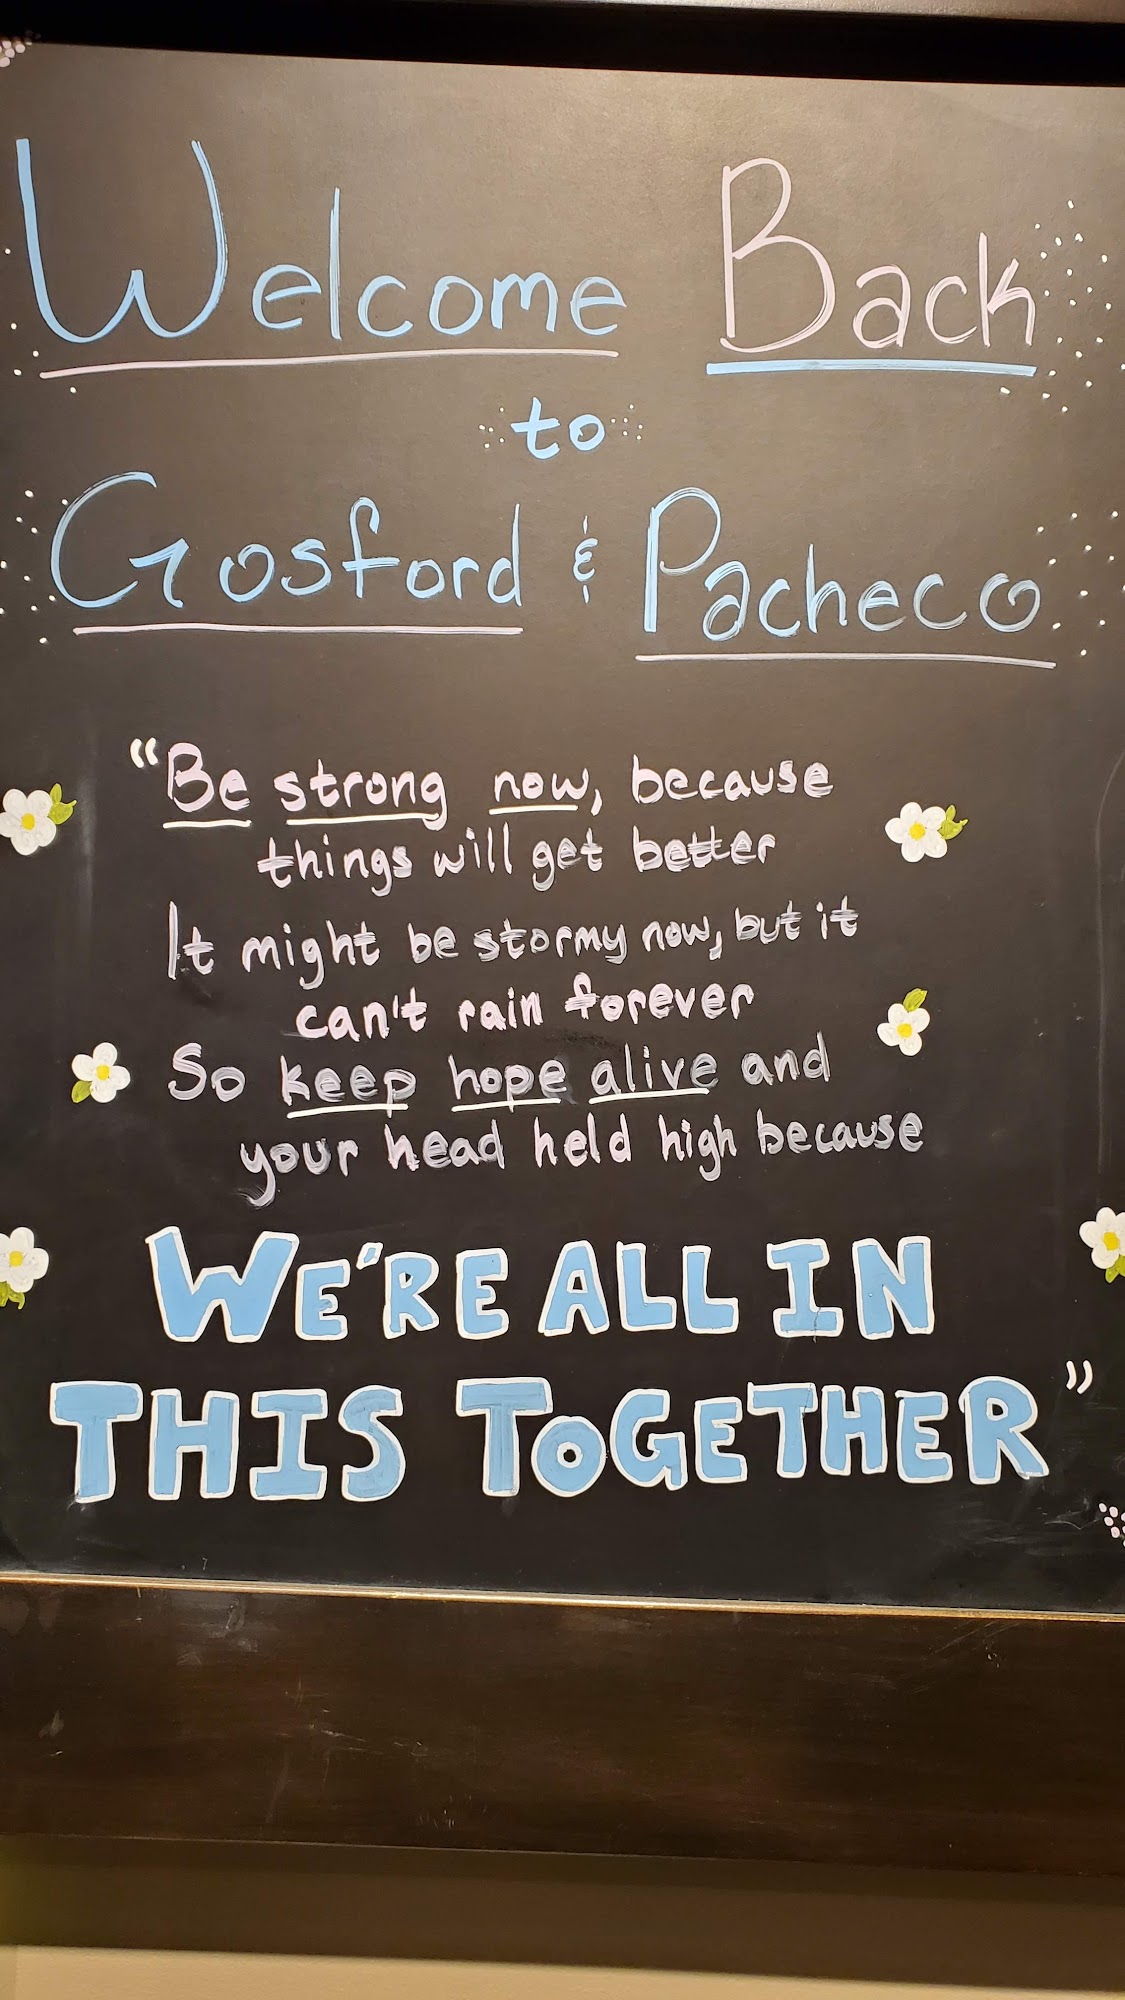 Welcome Back
to
Gosford & Pacheco
"Be strong now, because
things will get better
It might be stormy now, but it
can't rain forever
So keep hope alive and
your head held high because
WE'RE ALL IN
THIS TOGETHER"